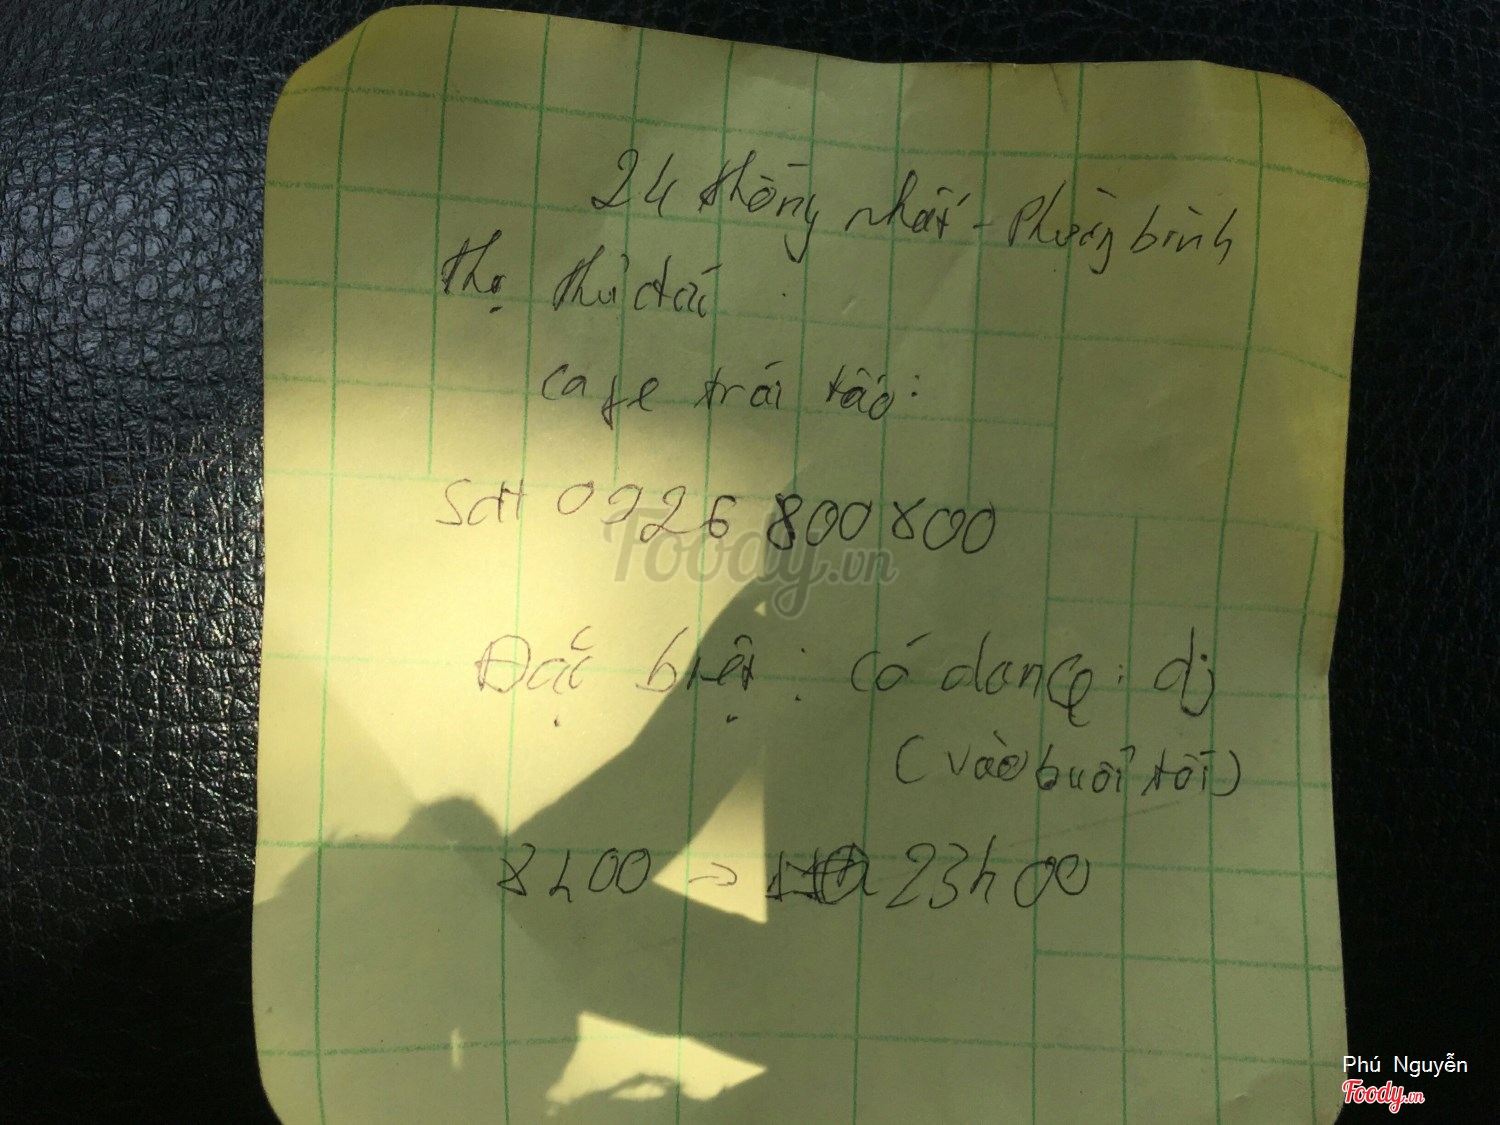 24 thống nhất - Phường bình
thọ thủ đức
cafe trái táo:
Sđt 0926 800 800
Foody.vn
Đặc biệt: có dance: dj
(vào buổi tối)
8h00 → 23h00
Phú Nguyễn
Foody.vn